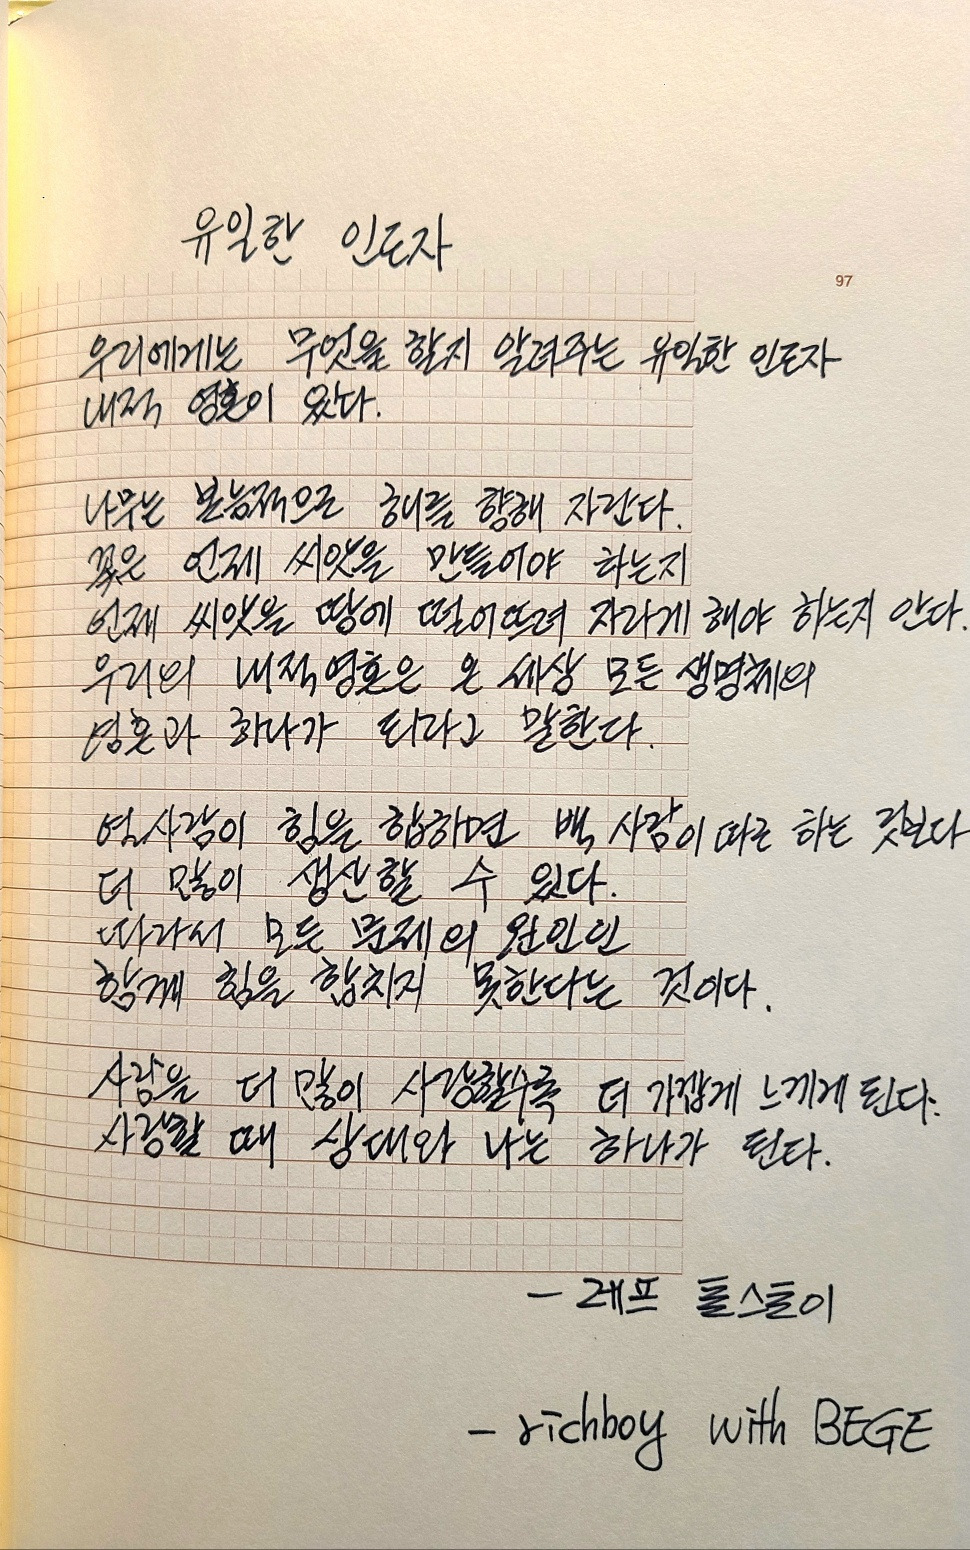 유일한 인도자
97
우리에게는 무엇을 할지 알려주는 유일한 인도자
내적 영혼이 있다.
나무는 본능적으로 해를 향해 자란다.
꽃은 언제 씨앗을 만들어야 하는지
언제 씨앗을 땅에 떨어뜨려 자라게 해야 하는지 안다.
우리의 내적영혼은 온 세상 모든 생명체의
영혼과 하나가 되라고 말한다.
열사람이 힘을 합하면 백 사람이 따로 하는 것보다
더 많이 생산할 수 있다.
따라서 모든 문제의 원인은
함께 힘을 합치지 못한다는 것이다.
사람을 더 많이 사랑할수록 더 가깝게 느끼게 된다.
사랑할 때 상대와 나는 하나가 된다.
- 레프 톨스토이
- richboy with BEGE